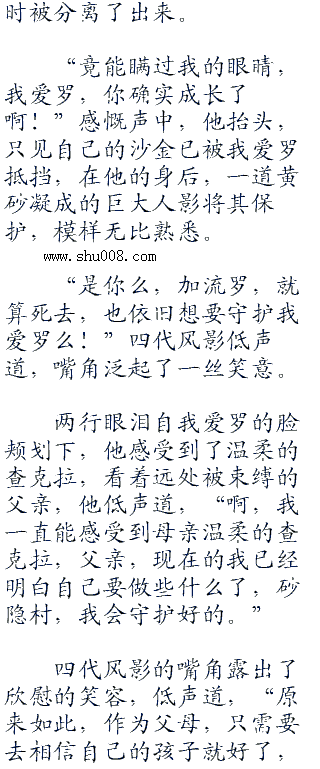 时被分离了出来。
“竟能瞒过我的眼睛，
我爱罗，你确实成长了
啊！”感慨声中，他抬头，
只见自己的沙金已被我爱罗
抵挡，在他的身后，一道黄
砂凝成的巨大人影将其保
护，模样无比熟悉。
www.shu008.com
“是你么，加流罗，就
算死去，也依旧想要守护我
爱罗么！”四代风影低声
道，嘴角泛起了一丝笑意。
两行眼泪自我爱罗的脸
颊划下，他感受到了温柔的
查克拉，看着远处被束缚的
父亲，他低声道，“啊，我
一直能感受到母亲温柔的查
克拉，父亲，现在的我已经
明白自己要做些什么了，砂
隐村，我会守护好的。”
四代风影的嘴角露出了
欣慰的笑容，低声道，“原
来如此，作为父母，只需要
去相信自己的孩子就好了，